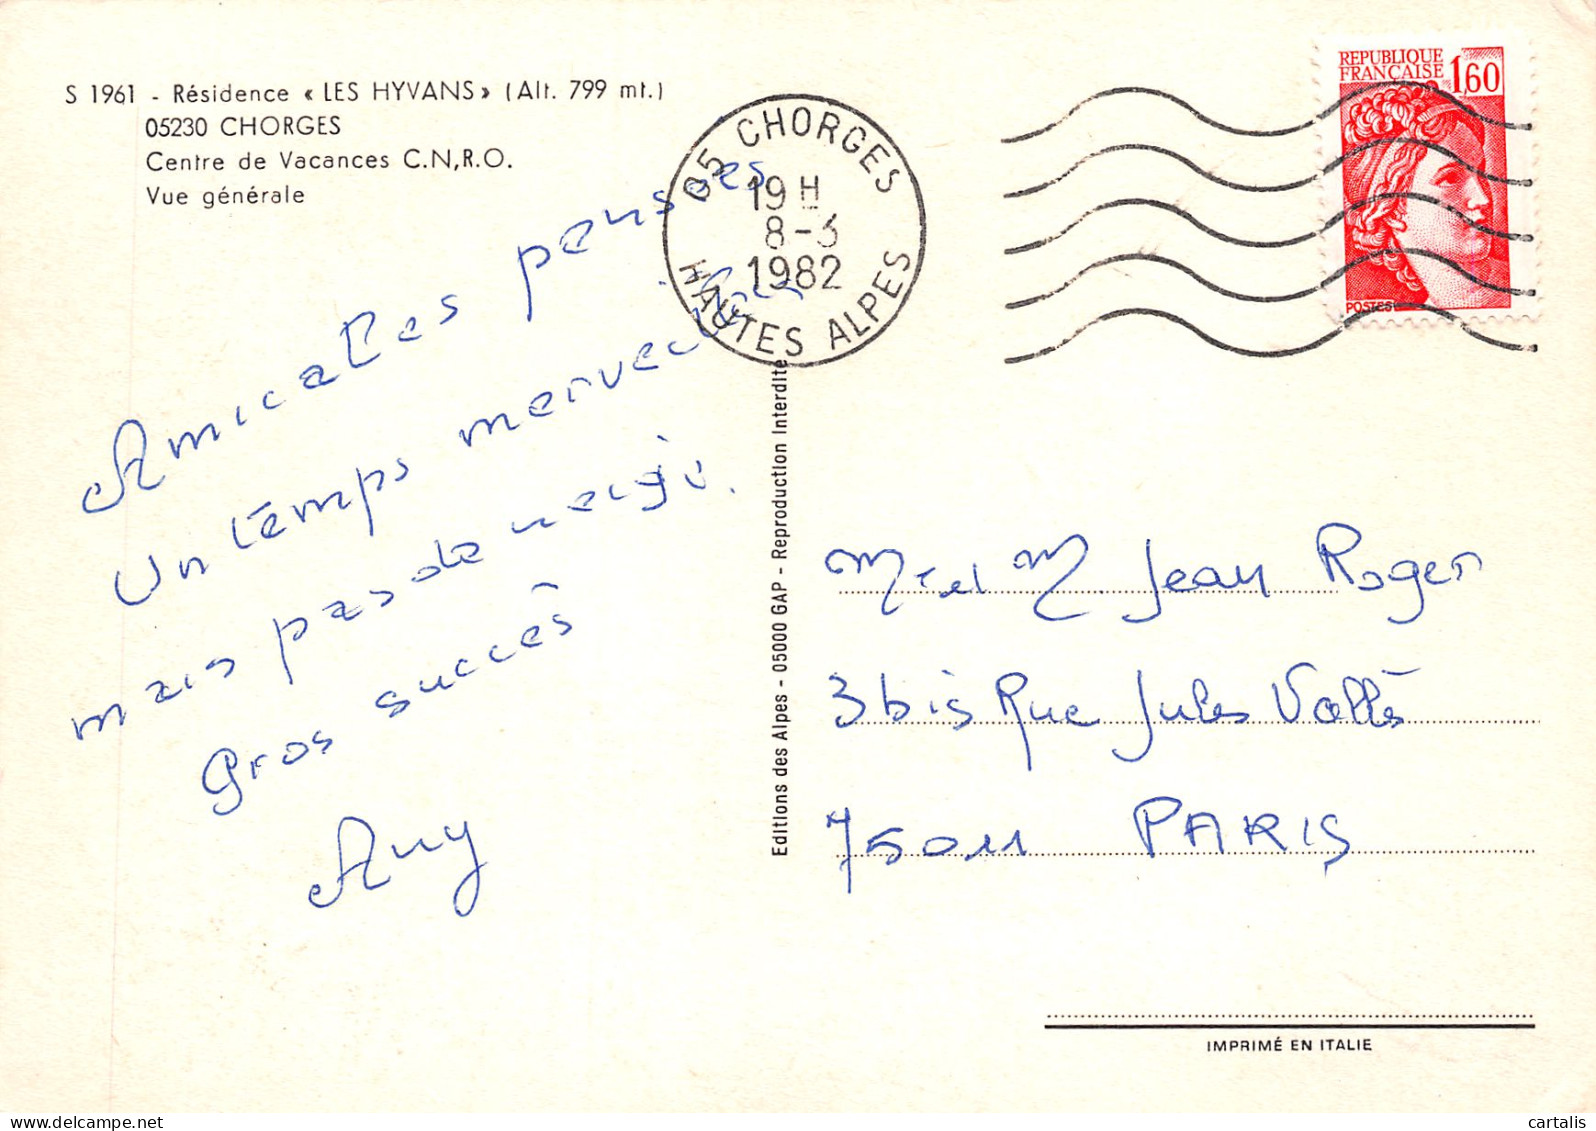 S 1961 - Résidence « LES HYVANS » (Alt. 799 mt.)
05230 CHORGES
Centre de Vacances C.N,R.O.
Vue générale
Amicales pensées
Un temps merveilleux
mais pas de neige.
Gros succès
05 CHORGES
19 H
8-3
1982
HAUTES ALPES
REPUBLIQUE
FRANÇAISE 1,60
POSTES
Editions des Alpes - 05000 GAP - Reproduction Interdite
M et M. Jean Roger
3 bis Rue Jules Vallès
75011 PARIS
IMPRIMÉ EN ITALIE
delcampe.net
cartalis